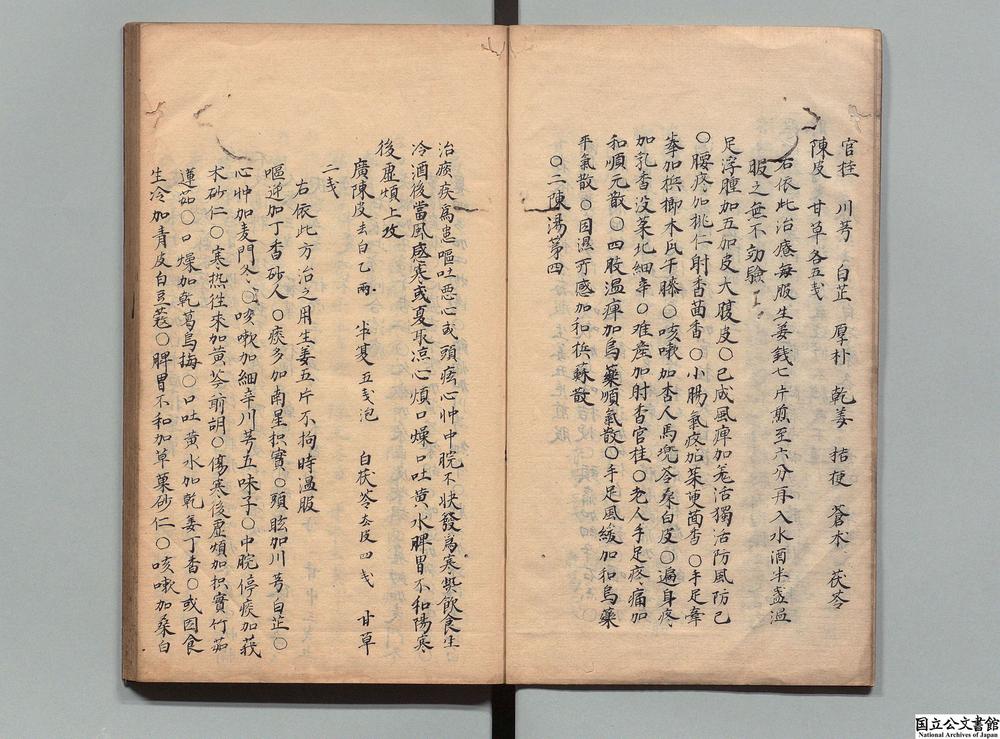 官桂 川芎 白芷 厚朴 乾姜 桔梗 蒼朮 茯苓
陳皮 甘草各五戋
右依此治療每服生姜錢七片煎至六分再入水酒半盞温
服之無不効驗
足浮腫加五加皮大腹皮〇已成風痺加羌活獨活防風防已
〇腰疼加桃仁射香茴香〇小腸氣疼加茱萸茴香〇手足攣
拳加梹榔木瓜牛膝〇咳嗽加杏人馬兜苓桑白皮〇遍身疼
加乳香没菜北細辛〇难産加肘香官桂〇老人手足疼痛加
和順元散〇四肢温痺加烏藥順氣散〇手足風緩加和烏藥
平氣散〇因濕所感加和梹蘇散
〇二陳湯第四
治痰疾爲患嘔吐悪心或頭痃心忡中脘不快發爲寒熱飲食生
冷酒後當風感寒或夏取凉心煩口燥口吐黄水脾胃不和陽寒
後虚煩上攻
廣陳皮去白乙兩 半夏五戋泡 白茯苓去皮四戋 甘草
二戋
右依此方治之用生姜五片不拘時温服
嘔逆加丁香砂人〇痰多加南星枳實〇頭眩加川芎白芷〇
心忡加麦門冬〇咳嗽加細辛川芎五味子〇中脘停痰加莪
朮砂仁〇寒热徃來加黄芩前胡〇傷寒後虚煩加枳實竹茹
蓮茹〇口燥加乾葛烏梅〇口吐黄水加乾姜丁香〇或因食
生冷加青皮白豆蔻〇脾胃不和加草菓砂仁〇咳嗽加桑白
国立公文書館
National Archives of Japan